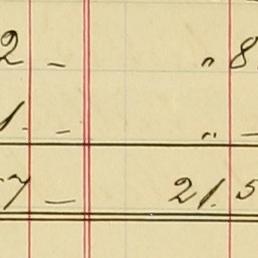 2 – „ 8
1 – „ –
7 – 21.5